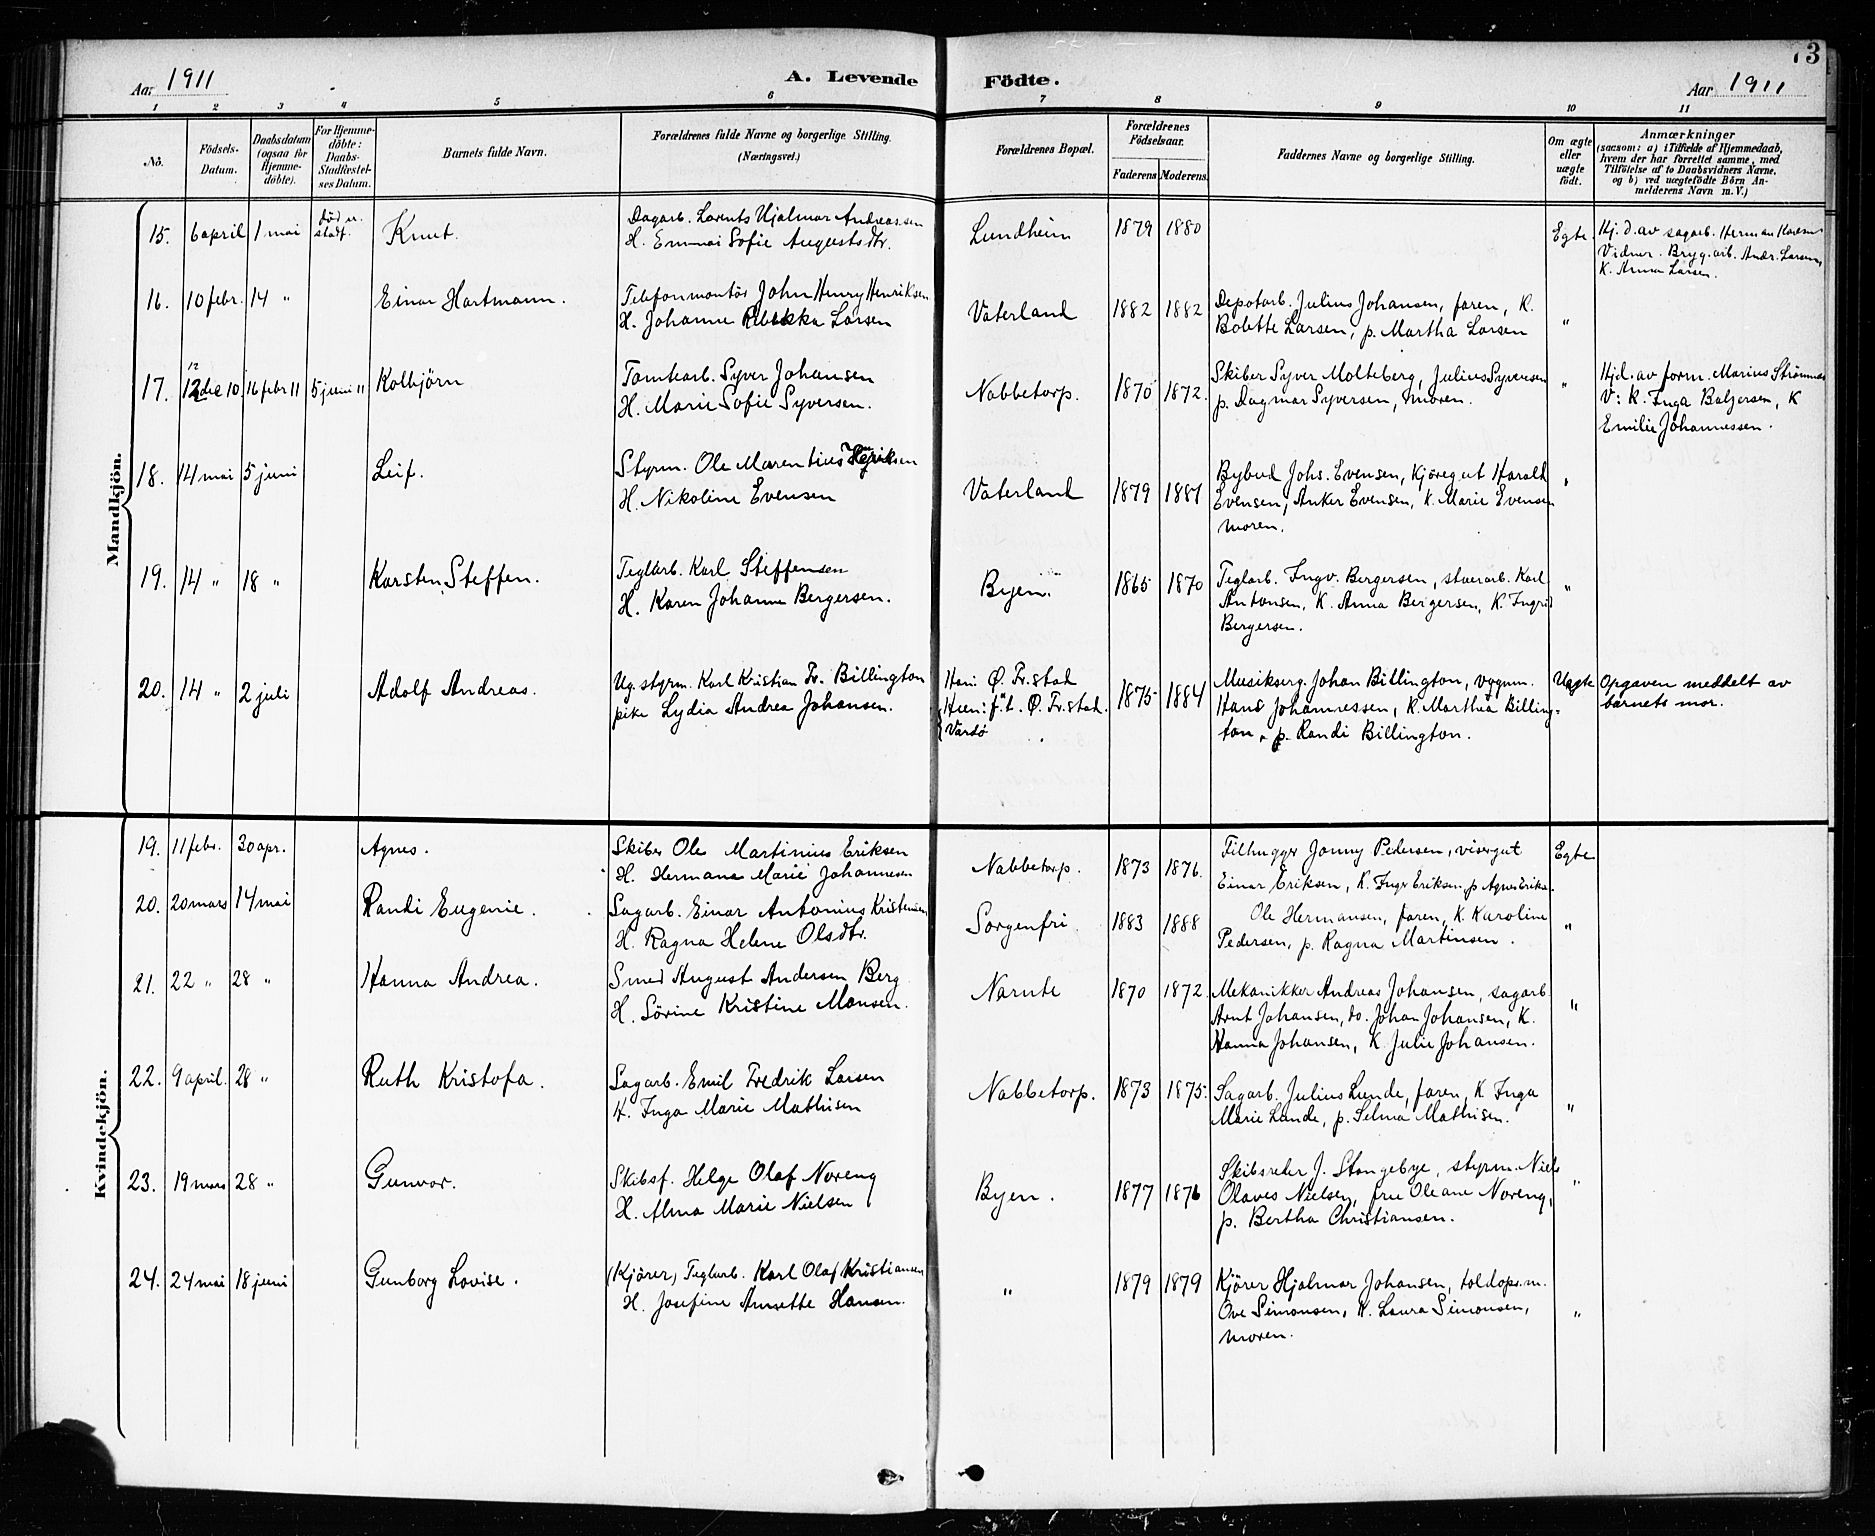 Aar 1911
A. Levende
Födte.
Aar 1911
13
1 2 3 4 5 6 7 8 9 10 11
No.
Födsels-
Datum.
Daabsdatum
(ogsaa for
Hjemme-
döbte).
For Hjemme-
döbte:
Daabs-
Stadfæstel-
ses Datum.
Barnets fulde Navn.
Forældrenes fulde Navne og borgerlige Stilling.
(Næringsvei.)
Forældrenes Bopæl.
Forældrenes
Födselsaar.
Faderens Moderens
Faddernes Navne og borgerlige Stilling.
Om ægte
eller
uægte
födt.
Anmærkninger
(saasom: a) i Tilfælde af Hjemmedaab,
hvem der har forrettet samme, med
Tilföielse af to Daabsvidners Navne,
og b) ved uægtefödte Börn An-
melderens Navn m. V.)
Mandkjön.
15. 6 april 1 mai Död er stadf. Knut. Dagarb. Lorents Hjalmar Andreassen Lundheim 1879 1880 Egte Hj. d. av sagarb. Herman
H. Emma Sofie Augustsdtr. Vidner. Bryg.arb. Andr. Larsen,
K. Anna Larsen.
16. 10 febr. 14 " Einar Hartmann. Telefonmontör John Henry Henriksen Vaterland 1882 1882 Depotarb. Julius Johansen, faren, K. "
H. Johanne Rebekka Larsen Bolette Larsen, p. Martha Larsen
17. 12 dec 10. 16 febr 11 5 juni 11 Kolbjörn Tomtearb. Syver Johansen Nabbetorp. 1870 1872. Skiber Syver Molteberg, Julius Syversen " Hjd. av form. Marius Strömnes
H. Marie Sofie Syversen. p. Dagmar Syversen, moren. V: K. Inga Bolgersen, K
Emilie Johannessen.
18. 14 mai 5 juni Leif. Styrm. Ole Marentius Vaterland 1879 1881 Bybud Johs. Evensen, Kjöregut Harald "
H. Nikoline Evensen Evensen, Anker Evensen, K. Marie Evensen
moren.
19. 14 " 18 " Karsten Steffen. Teglarb. Karl Steffensen Byen. 1865 1870 Teglarb. Ingv. Bergersen, stuerarb. Karl "
H. Karen Johanne Bergersen. Antonsen, K. Anna Bergersen, K. Ingrid
Bergersen.
20. 14 " 2 juli Adolf Andreas. Ug. styrm. Karl Kristian Fr. Billington Han: Ø. Fr.stad 1875 1884 Musikserg. Johan Billington, vognm. Uegte Opgaven meddelt av
pike Lydia Andrea Johansen. Hun: f. t. Ø. Fr.stad. Hans Johannessen, K. Martha Billing- barnets mor.
Vardø ton, p. Randi Billington.
Kvindekjön.
19. 11 febr. 30 apr. Agnes. Skiber Ole Martinius Eriksen Nabbetorp. 1873 1876. Filhugger Jonny Pedersen, visergut Egte
H. Hermana Marie Johannesen Einar Eriksen, K. Inga Eriksen, p Agnes Eriks.
20. 20 mars 14 mai Randi Eugenie. Sagarb. Einar Antonius Kristensen Sorgenfri. 1883 1888 Ole Hermansen, faren, K. Karoline "
H. Ragna Helene Olsdtr. Pedersen, p. Ragna Martinsen.
21. 22 " 28 " Hanna Andrea. Smed August Andersen Berg Narnte 1870 1872. Mekanikker Andreas Johansen, sagarb. "
H. Sörine Kristine Monsen. Arnt Johansen, do. Johan Johansen, K.
Hanna Johansen, K. Julie Johansen.
22. 9 april. 28 " Ruth Kristofa. Sagarb. Emil Fredrik Larsen Nabbetorp. 1873 1875. Sagarb. Julius Lunde, faren, K. Inga "
H. Inga Marie Mathisen Marie Lunde, p. Selma Mathisen.
23. 19 mars 28 " Gunvor. Skibsf. Helge Olaf Noreng Byen. 1877 1876 Skibsreder J. Stangebye, styrm. Niels "
H. Alma Marie Nielsen Olaves Nielsen, frue Oleane Noreng,
p. Bertha Christiansen.
24. 24 mai 18 juni Gunborg Lovise. (Kjörer) Teglarb. Karl Olaf Kristiansen " 1879 1879 Kjörer Hjalmar Johansen, toldops.m. "
H. Josefine Annette Hansen. Ove Simonsen, K. Laura Simonsen,
moren.